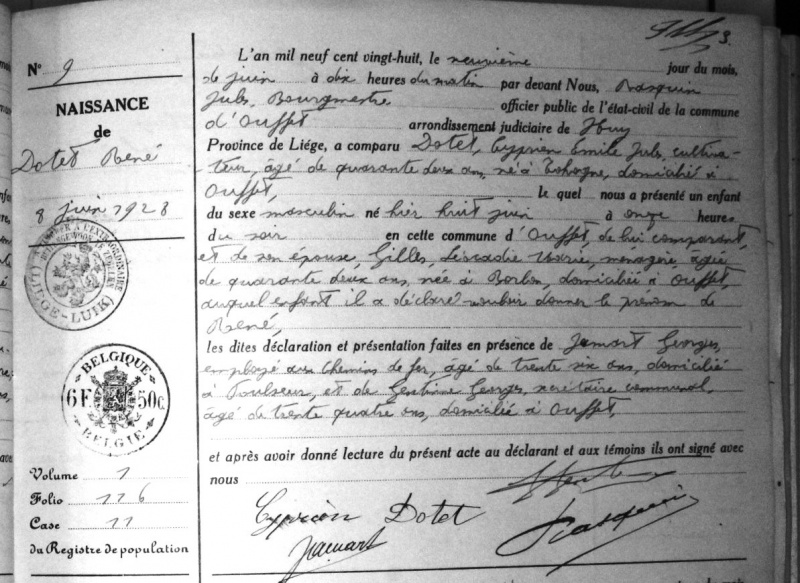 N° 9
NAISSANCE
de
Dotet René
8 juin 1928
LIÉGE-LUIK
BELGIQUE
6F. 50c.
BELGIË
Volume 1
Folio 116
Case 11
du Registre de population
3.
L'an mil neuf cent vingt-huit, le neuvième jour du mois,
de juin à dix heures du matin par devant Nous, Rasquin
Jules, Bourgmestre officier public de l'état-civil de la commune
d'Ouffet arrondissement judiciaire de Huy
Province de Liége, a comparu Dotet, Cyprien Emile Jules, cultiva-
teur, âgé de quarante deux ans, né à Tohogne, domicilié à
Ouffet, le quel nous a présenté un enfant
du sexe masculin né hier huit juin à onze heures
du soir en cette commune d'Ouffet, de lui comparant,
et de son épouse, Gilles, Léocadie Marie, ménagère, âgée
de quarante deux ans, née à Borlon, domiciliée à Ouffet,
auquel enfant il a déclaré vouloir donner le prénom de
René,
les dites déclaration et présentation faites en présence de Jamart Georges,
employé aux chemins de fer, âgé de trente six ans, domicilié
à Poulseur, et de Georges, secrétaire communal,
âgé de trente quatre ans, domicilié à Ouffet,
et après avoir donné lecture du présent acte au déclarant et aux témoins ils ont signé avec
nous
Cyprien Dotet
Jamart
Rasquin